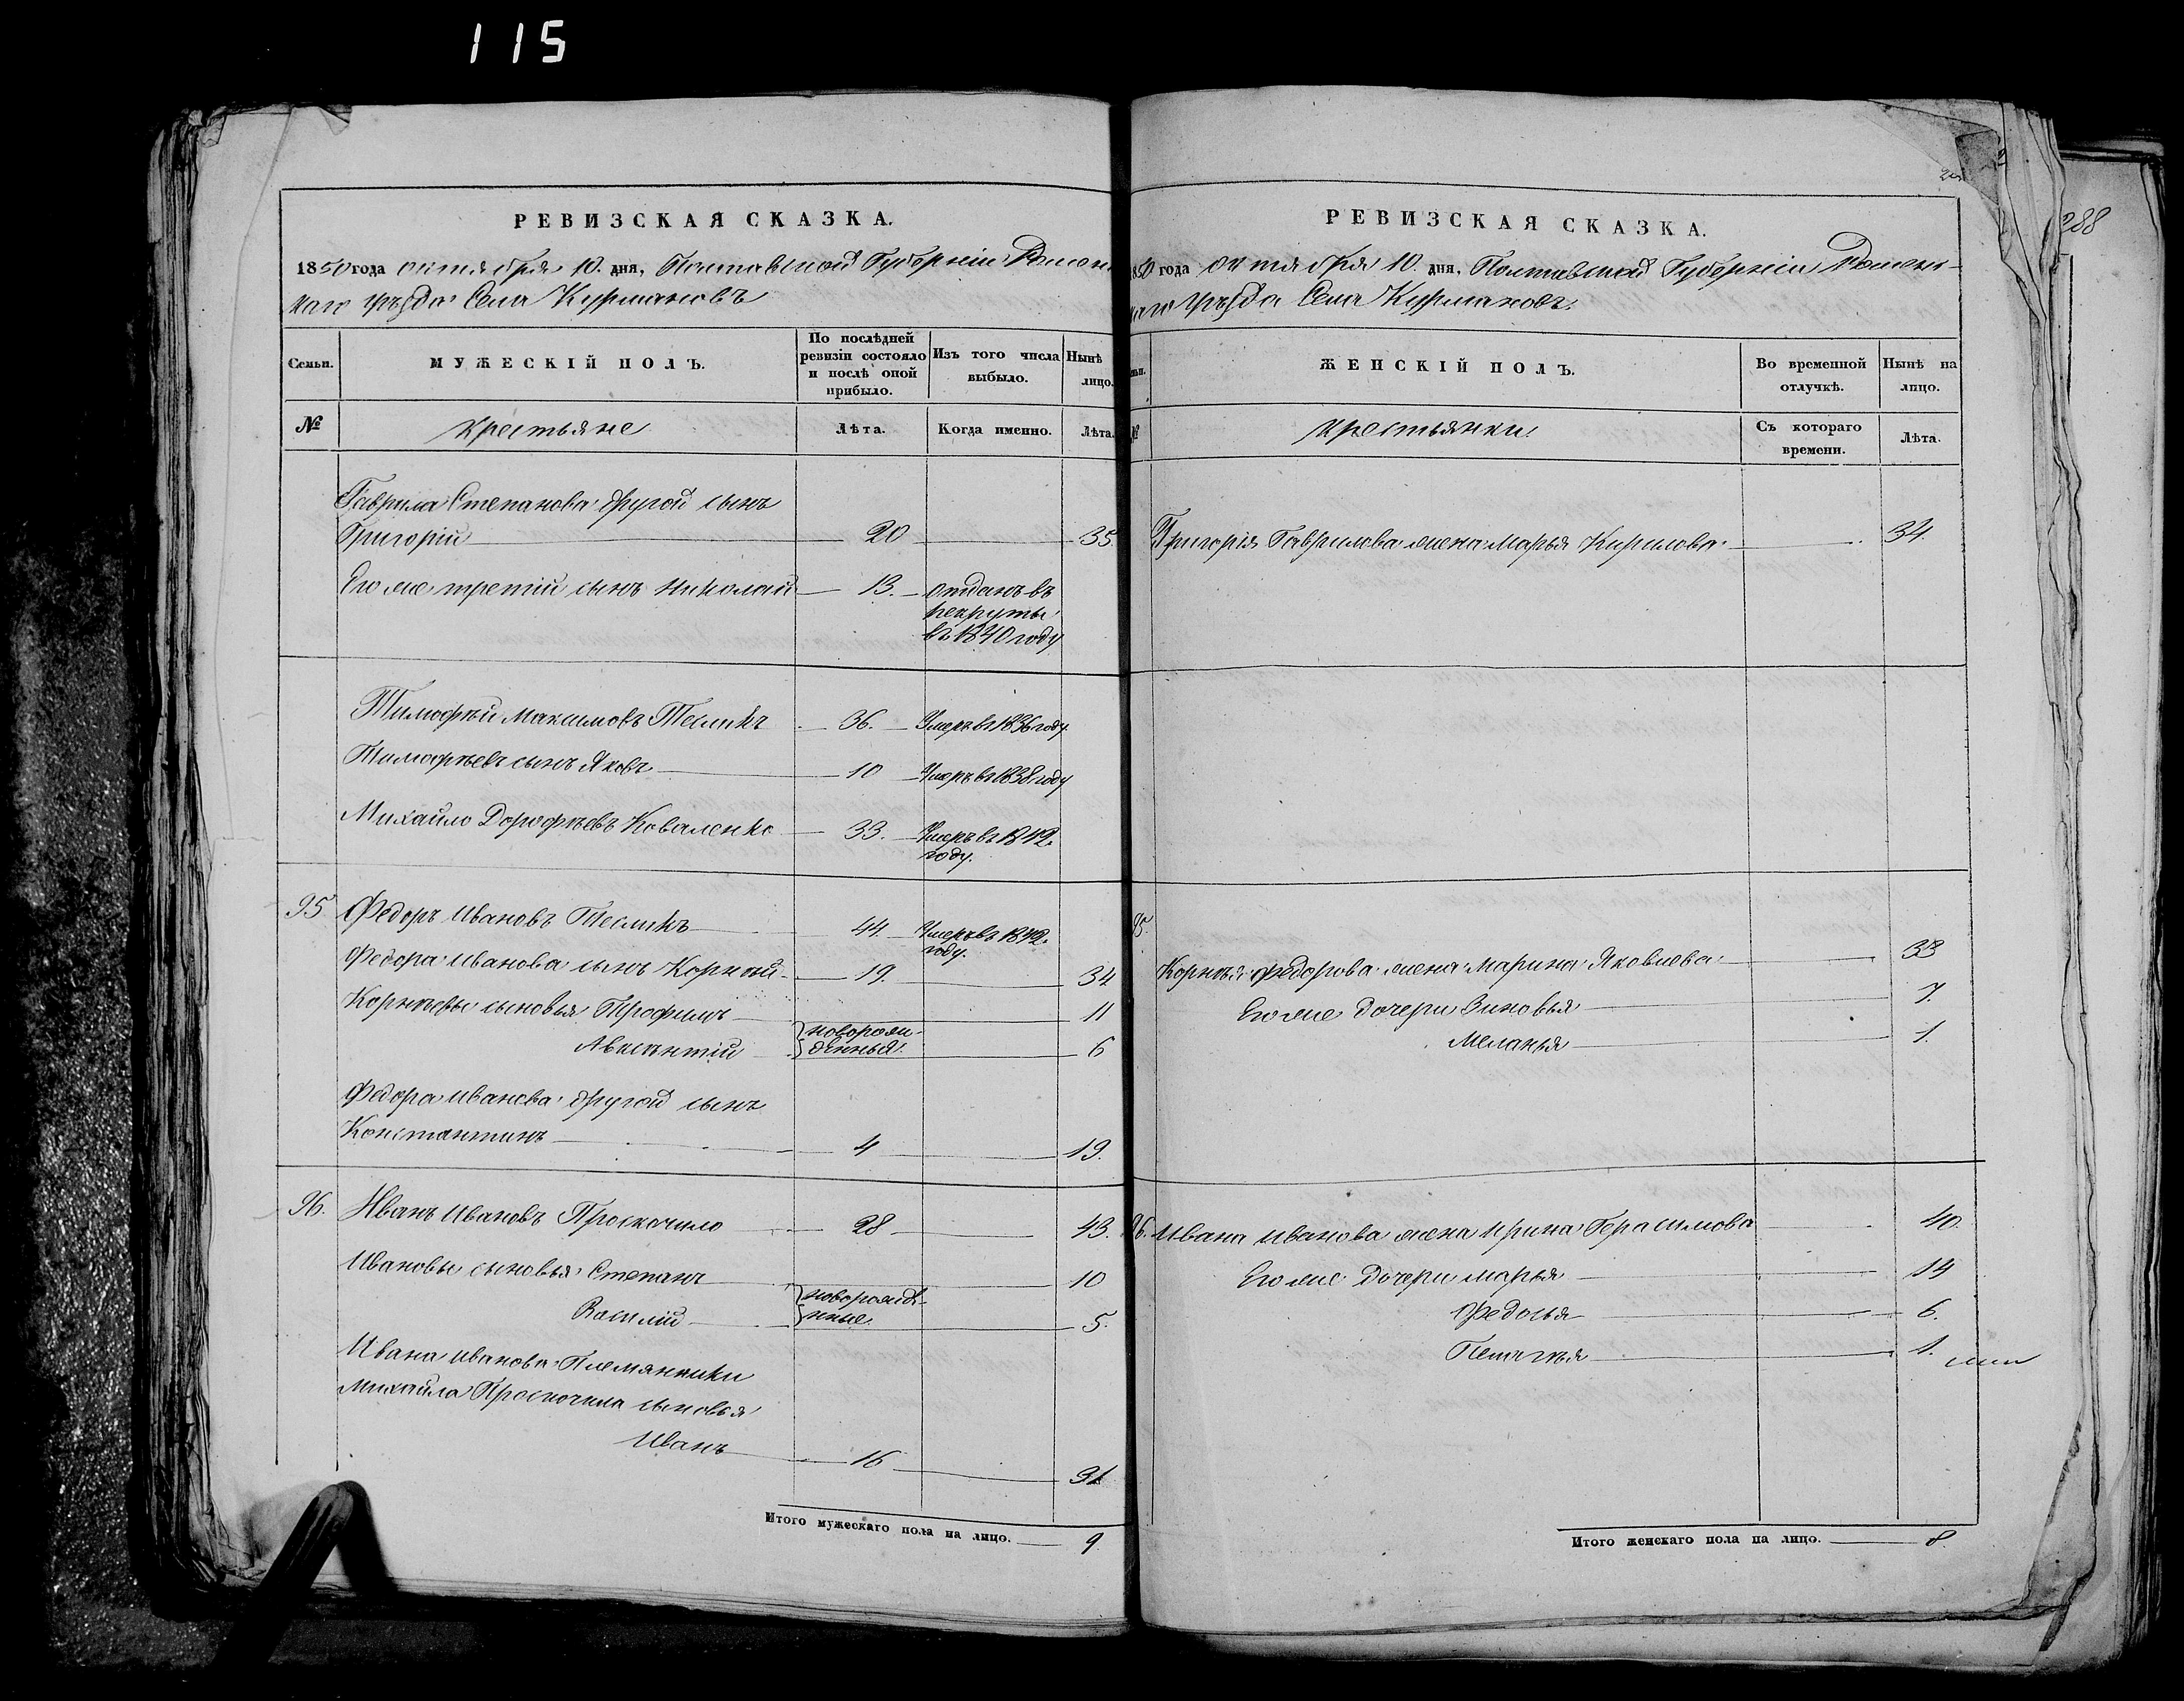 115
РЕВИЗСКАЯ СКАЗКА.
1850 года октября 10. дня, Полтавской Губерніи Ромен
каго уѣзда Села Курмановъ
Семьи.
МУЖЕСКІЙ ПОЛЪ.
По послѣдней ревизіи состояло и послѣ оной прибыло.
Изъ того числа выбыло.
Нынѣ лицо.
№
крестьяне
Лѣта.
Когда именно.
Лѣта.
Гаврила Степанова другой сынъ
Григорій 20 35
Его же третій сынъ Николай 13. отданъ въ
рекруты
въ 1840 году
Тимофѣй Максимовъ Тесликъ 36. Умеръ въ 1836 году
Тимофѣевъ сынъ Яковъ 10 Умеръ въ 1838 году
Михайло Дорофѣевъ Коваленко 33. Умеръ въ 1842.
году.
95 Федоръ Ивановъ Тесликъ 44. Умеръ въ 1842.
году.
Федора Иванова сынъ Корнѣй 19. 34
Корнѣевы сыновья Трофимъ 11
новорож-
денныя
Авксентій 6
Федора Иванова другой сынъ
Константинъ 4 19.
96. Иванъ Ивановъ Проскочило 28 43.
Ивановы сыновья Степанъ 10
новорожде-
нные
Василій 5.
Ивана Иванова Племянники
Михайла Проскочила сыновья
Иванъ 16 31
Итого мужескаго пола на лицо. 9
288
РЕВИЗСКАЯ СКАЗКА.
850 года октября 10. дня, Полтавской Губерніи Роменс-
каго уѣзда Села Курмановъ.
ЖЕНСКІЙ ПОЛЪ.
Во временной отлучкѣ.
Нынѣ на лицо.
№
крестьянки
Съ котораго времени.
Лѣта.
Григорія Гаврилова жена Марья Кирилова 34.
95.
Корнѣя Федорова жена Марина Яковлева 33
Его же дочери Зиновья 7.
Меланья 1.
96. Ивана Иванова жена Ирина Герасимова 40.
Его же дочери Марья 14
Федосья 6.
Пелагѣя 1.
Итого женскаго пола на лицо. 8